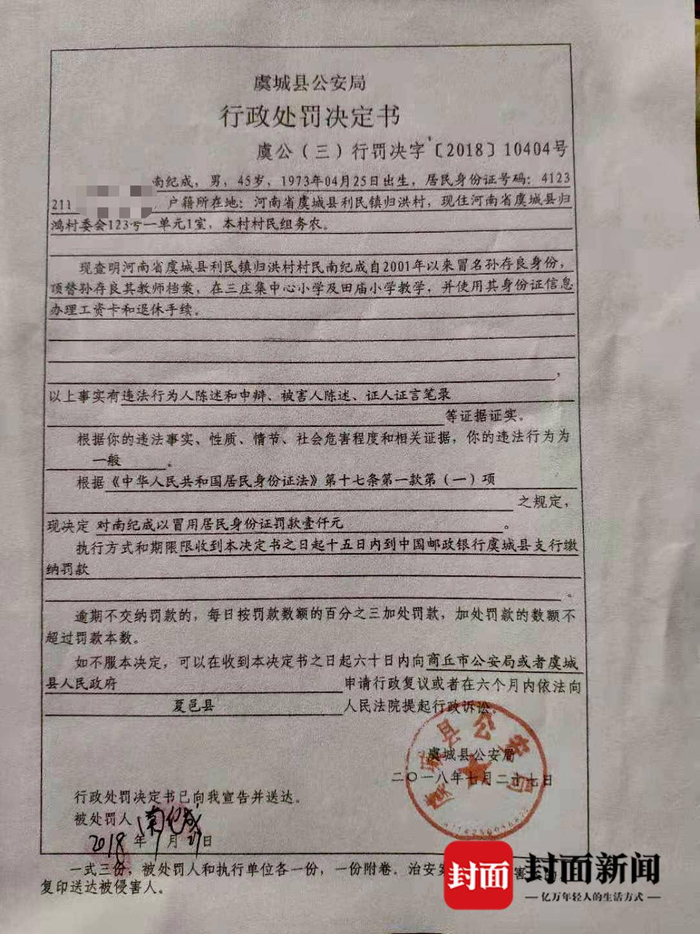 虞城县公安局
行政处罚决定书
虞公（三）行罚决字〔2018〕10404号
南纪成，男，45岁，1973年04月25日出生，居民身份证号码：4123
211，户籍所在地：河南省虞城县利民镇归洪村，现住河南省虞城县归
鸿村委会123号一单元1室，本村村民组务农。
现查明河南省虞城县利民镇归洪村村民南纪成自2001年以来冒名孙存良身份，
顶替孙存良其教师档案，在三庄集中心小学及田庙小学教学，并使用其身份证信息
办理工资卡和退休手续。
，
以上事实有违法行为人陈述和申辩、被害人陈述、证人证言笔录
等证据证实。
根据你的违法事实、性质、情节、社会危害程度和相关证据，你的违法行为为
一般。
根据《中华人民共和国居民身份证法》第十七条第一款第（一）项
之规定，
现决定 对南纪成以冒用居民身份证罚款壹仟元。
执行方式和期限限收到本决定书之日起十五日内到中国邮政银行虞城县支行缴
纳罚款
。
逾期不交纳罚款的，每日按罚款数额的百分之三加处罚款，加处罚款的数额不
超过罚款本数。
如不服本决定，可以在收到本决定书之日起六十日内向商丘市公安局或者虞城
县人民政府 申请行政复议或者在六个月内依法向
夏邑县 人民法院提起行政诉讼。
虞城县公安局
二〇一八年七月二十七日
虞城县公安局
行政处罚决定书已向我宣告并送达。
被处罚人 南纪成
2018年7月27日
一式三份，被处罚人和执行单位各一份，一份附卷。治安
复印送达被侵害人。
封面 封面新闻
亿万年轻人的生活方式